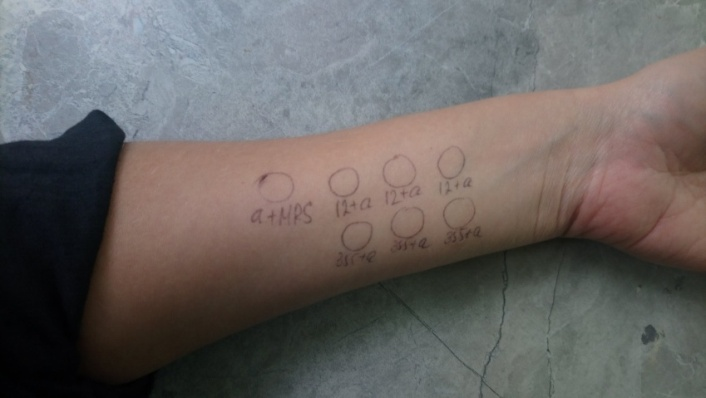 a+MRS 12+a 12+a 12+a
355+a 355+a 355+a